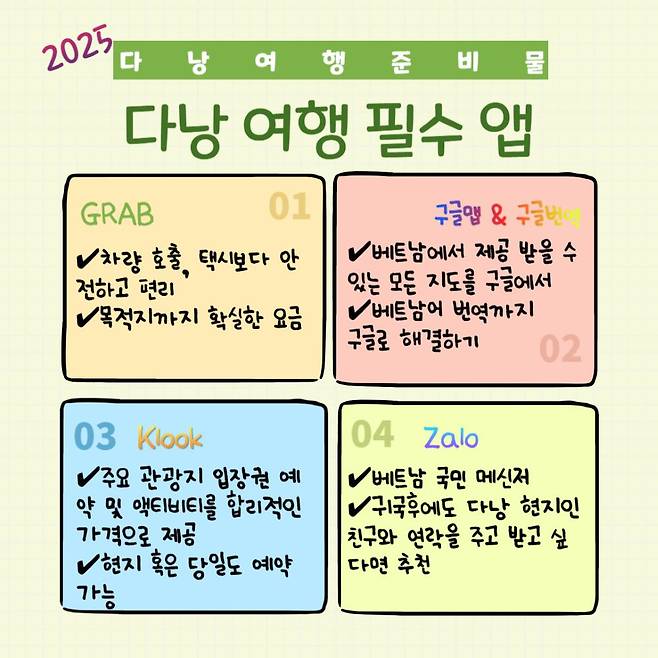 2025
다낭여행준비물
다낭 여행 필수 앱
GRAB
01
✔차량 호출, 택시보다 안
전하고 편리
✔목적지까지 확실한 요금
구글맵 & 구글번역
✔베트남에서 제공 받을 수
있는 모든 지도를 구글에서
✔베트남어 번역까지
구글로 해결하기
02
03
Klook
✔주요 관광지 입장권 예
약 및 액티비티를 합리적인
가격으로 제공
✔현지 혹은 당일도 예약
가능
04
Zalo
✔베트남 국민 메신저
✔귀국후에도 다낭 현지인
친구와 연락을 주고 받고 싶
다면 추천